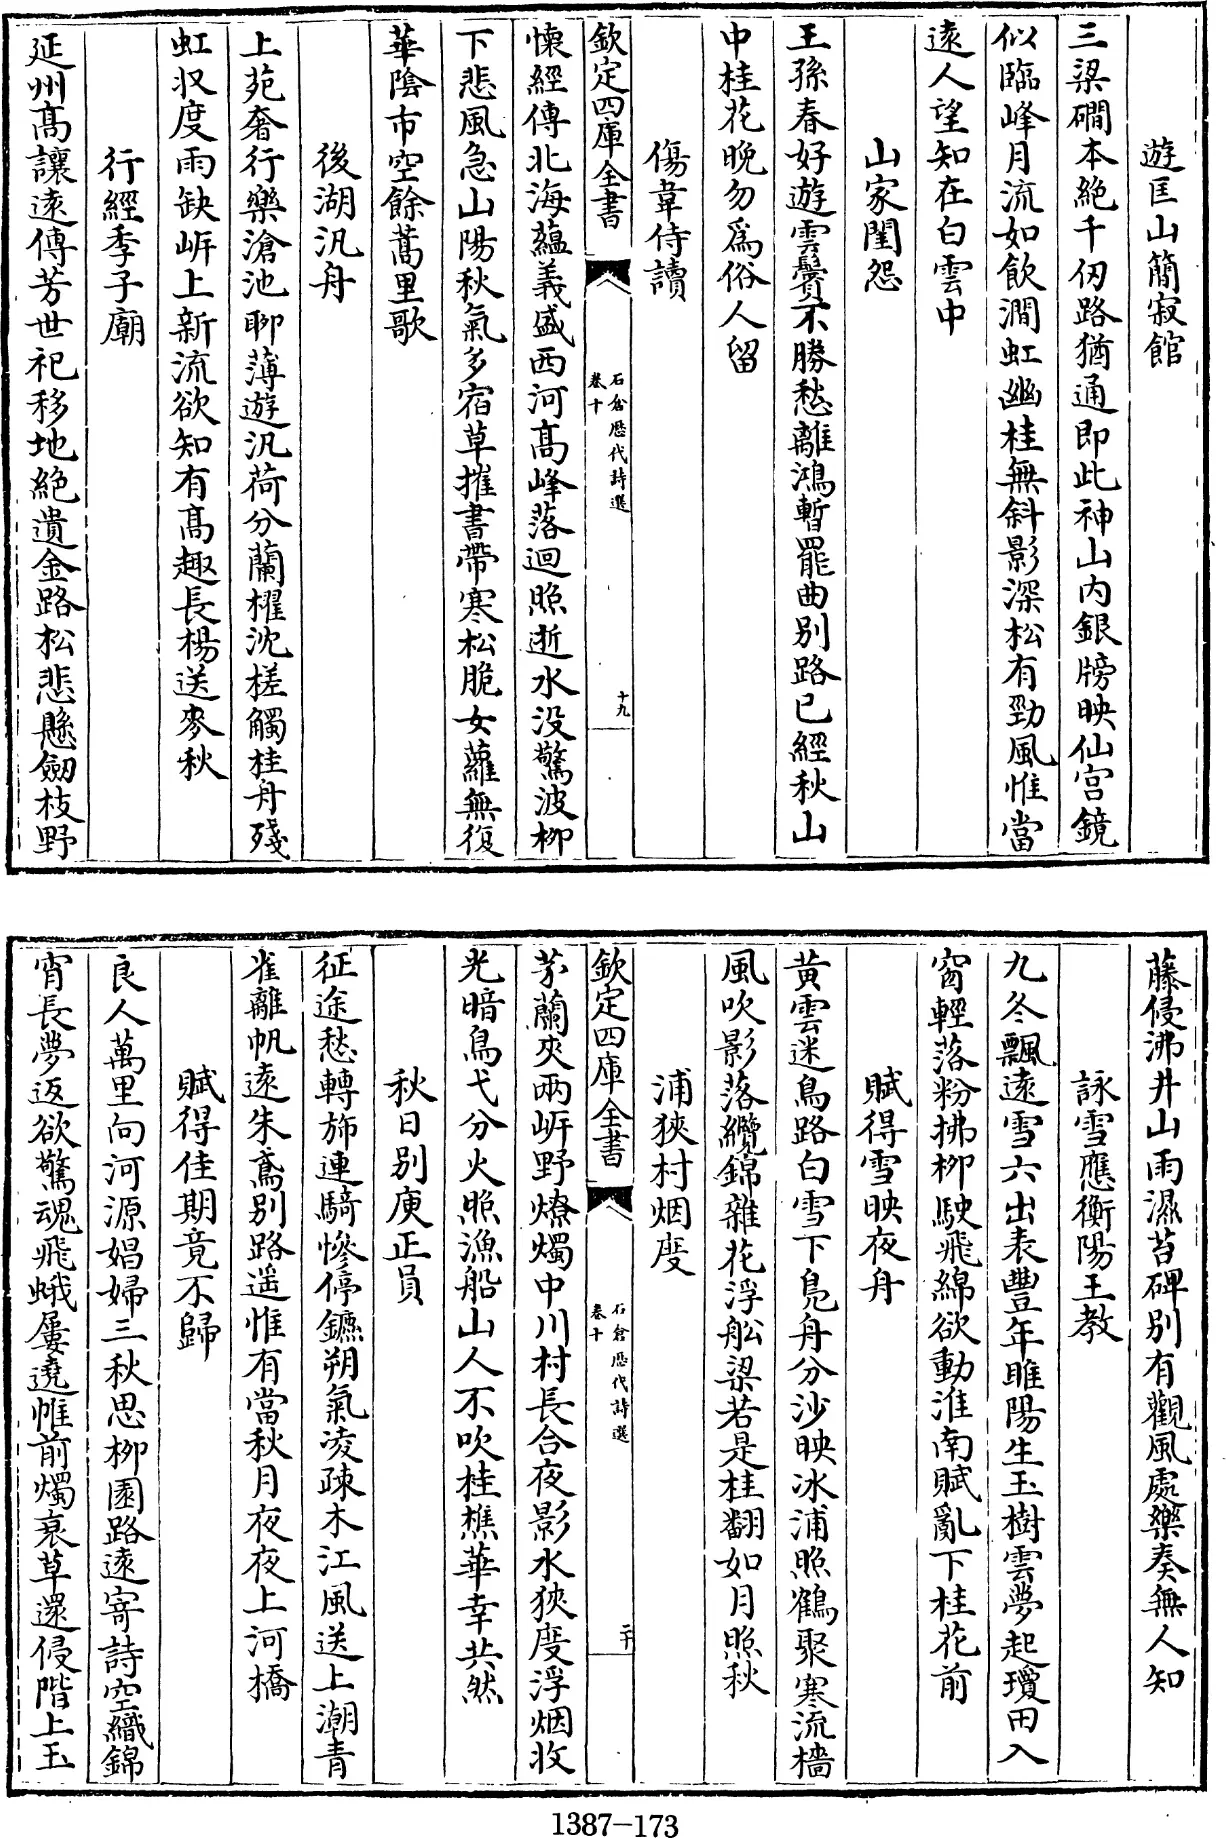 遊匡山簡寂館
三梁磵本絶千仭路猶通即此神山内銀牓映仙宫鏡
似臨峰月流如飲澗虹幽桂無斜影深松有勁風惟當
逺人望知在白雲中
山家閨怨
王孫春好遊雲鬢不勝愁離鴻暫罷曲别路已經秋山
中桂花晚勿爲俗人留
傷韋侍讀
欽定四庫全書
石倉歴代詩選
卷十
十九
懐經傳北海藴義盛西河髙峰落迴照逝水没驚波栁
下悲風急山陽秋氣多宿草摧書帶寒松脆女蘿無復
華陰市空餘蒿里歌
後湖汎舟
上苑奢行樂滄池聊薄遊汎荷分蘭櫂沈槎觸桂舟殘
虹収度雨缺㟁上新流欲知有髙趣長楊送麥秋
行經季子廟
延州髙讓逺傳芳世祀移地絶遺金路松悲懸劒枝野
藤侵沸井山雨濕苔碑别有觀風處樂奏無人知
詠雪應衡陽王教
九冬飄逺雪六出表豐年睢陽生玉樹雲夢起瓊田入
窗輕落粉拂栁駛飛綿欲動淮南賦亂下桂花前
賦得雪映夜舟
黄雲迷鳥路白雪下凫舟分沙映冰浦照鶴聚寒流檣
風吹影落纜錦雜花浮舩梁若是桂翻如月照秋
浦狹村烟度
欽定四庫全書
石倉歴代詩選
卷十
二十
茅蘭夾兩㟁野燎燭中川村長合夜影水狹度浮烟收
光暗鳥弋分火照漁船山人不吹桂樵華幸共然
秋日别庾正員
征途愁轉斾連騎慘停鑣朔氣凌疎木江風送上潮青
雀離帆逺朱鳶别路遥惟有當秋月夜夜上河橋
賦得佳期竟不歸
良人萬里向河源娼婦三秋思栁園路逺寄詩空織錦
宵長夢返欲驚魂飛蛾屢遶帷前燭衰草還侵階上玉
1387-173